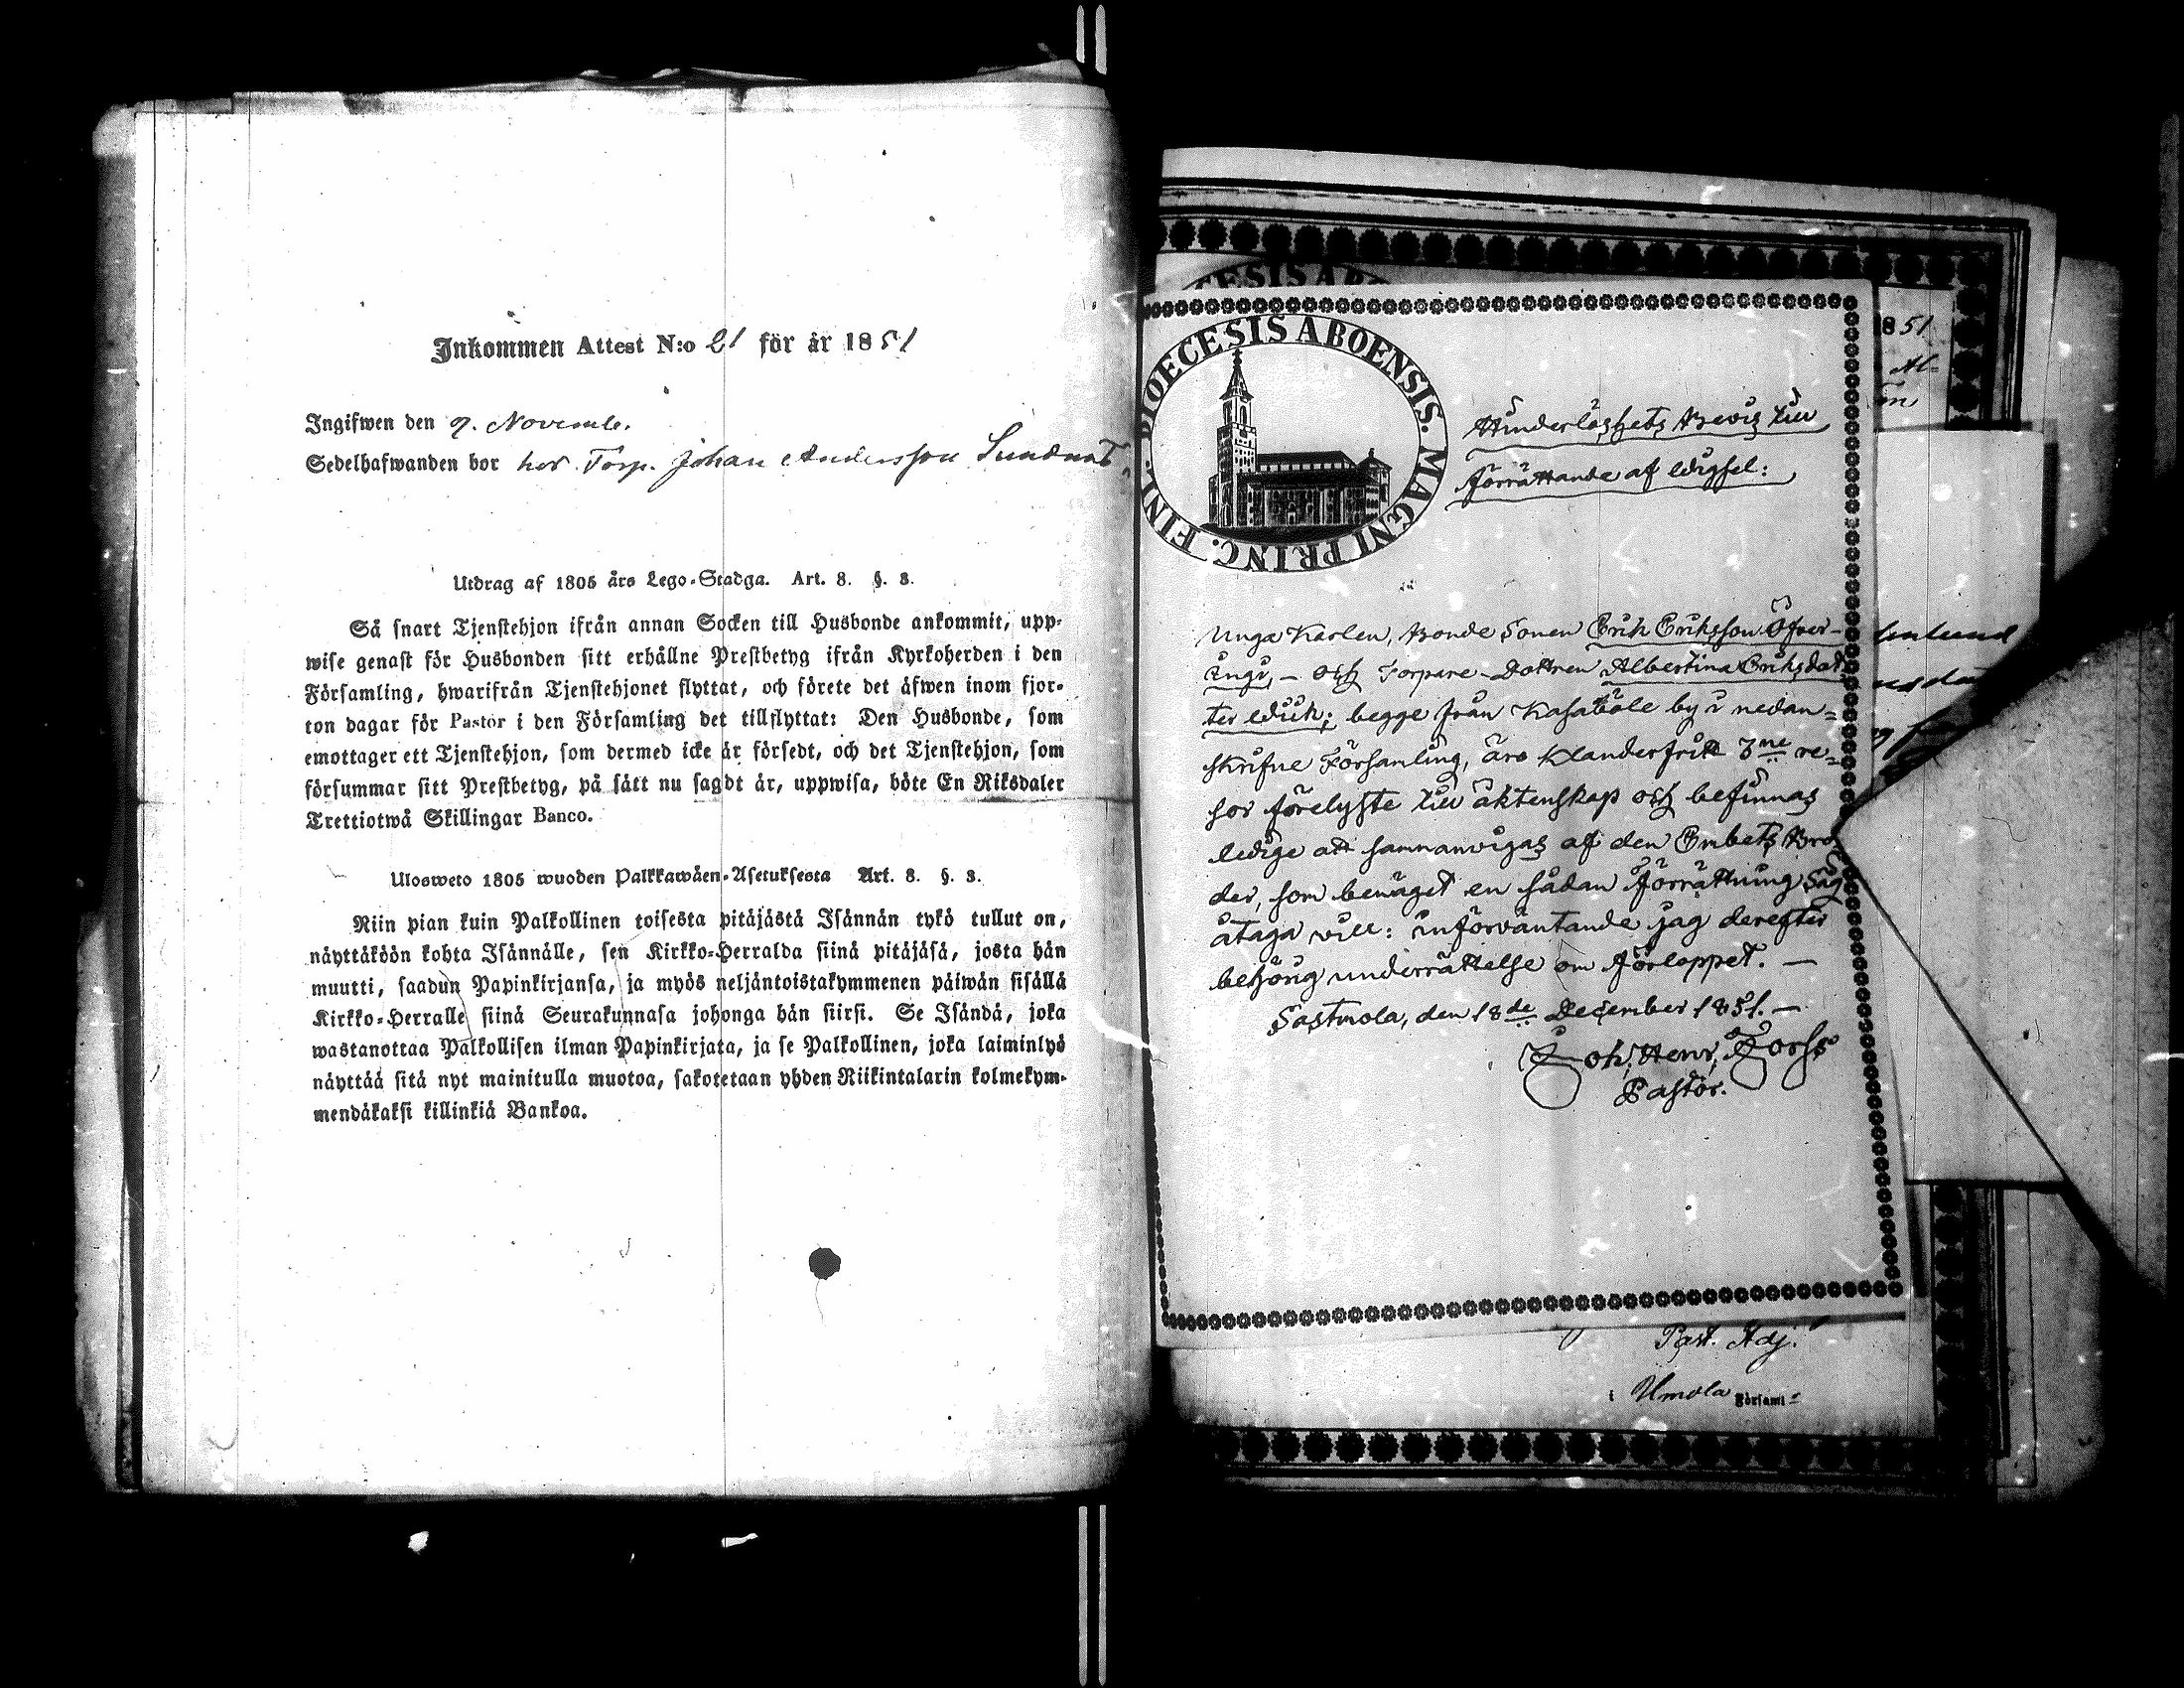 Inkommen Attest N:o 21 för år 1851
Ingifwen den 9. Novemb.
Sedelhafwanden bor hos Torp. Johan Andersson Sundnäs
Utdrag af 1805 års Lego-Stadga. Art. 8. §. 3.
Så snart Tjenstehjon ifrån annan Socken till Husbonde ankommit, upp-
wise genast för Husbonden sitt erhållne Prestbetyg ifrån Kyrkoherden i den
Församling, hwarifrån Tjenstehjonet flyttat, och förete det äfwen inom fjor-
ton dagar för Pastor i den Församling det tillflyttat: Den Husbonde, som
emottager ett Tjenstehjon, som dermed icke är försedt, och det Tjenstehjon, som
försummar sitt Prestbetyg, på sätt nu sagdt är, uppwisa, böte En Riksdaler
Trettiotwå Skillingar Banco.
Ulosweto 1805 wuoden Palkkawäen-Asetuksesta Art. 8. §. 3.
Niin pian kuin Palkollinen toisesta pitäjästä Isännän tykö tullut on,
näyttäköön kohta Isännälle, sen Kirkko-Herralda siinä pitäjäsä, josta hän
muutti, saadun Papinkirjansa, ja myös neljäntoistakymmenen päiwän sisällä
Kirkko-Herralle siinä Seurakunnasa johonga hän siirsi. Se Isändä, joka
wastanottaa Palkollisen ilman Papinkirjata, ja se Palkollinen, joka laiminlyö
näyttää sitä nyt mainitulla muotoa, sakotetaan yhden Riikintalarin kolmekym-
mendäkaksi killinkiä Bankoa.
DIOECESIS ABOENSIS. MAGNI PRINC. FINL.
Hinderlöshets Bevis till
förrättande af Wigsel:
Unga Karlen, Bonde Sonen Erik Eriksson Öfver-
Ingv, – och Torpare-Dottren Albertina Eriksdot
ter Wiik; begge från Kasaböle by i nedan-
skrifne Församling, äro Klanderfritt 3ne re-
sor förelyste till äktenskap och befinnas
ledige att sammanvigas af den Embets Bro
der, som benäget en sådan förrättning sig
åtaga vill: införväntande jag derefter
behörig underrättelse om förloppet. –
Sastmola, den 18de December 1851. –
Joh. Henr. Forss
Pastor.
1851
Past. Adj.
i Ulmola Församl-